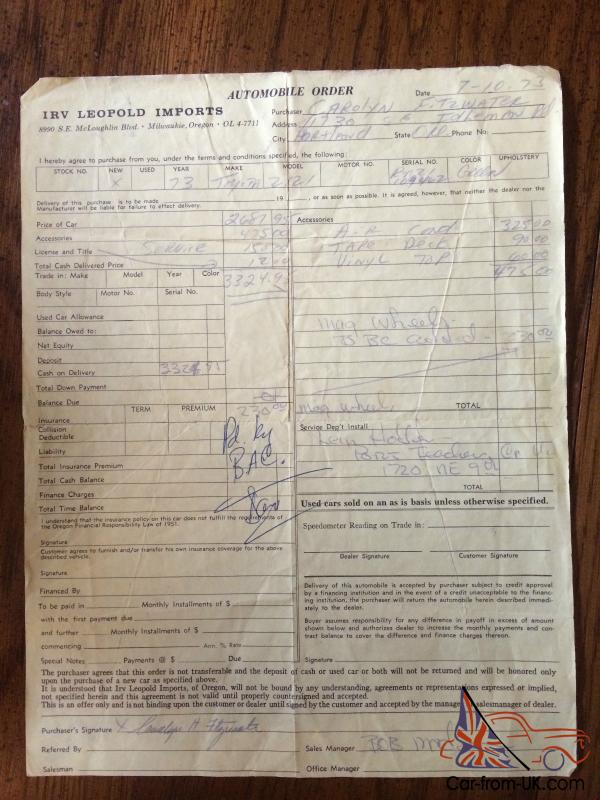 AUTOMOBILE ORDER
Date 7-10-73
IRV LEOPOLD IMPORTS
8990 S.E. McLoughlin Blvd. • Milwaukie, Oregon • OL 4-7711
Purchaser CAROLYN FITZWATER
Address 11730 S E Idleman Rd
City Portland State ORE Phone No:
I hereby agree to purchase from you, under the terms and conditions specified, the following:
STOCK NO. NEW USED YEAR MAKE MODEL MOTOR NO. SERIAL NO. COLOR UPHOLSTERY
X 73
Delivery of this purchase is to be made 19 , or as soon as possible. It is agreed, however, that neither the dealer nor the
Manufacturer will be liable for failure to effect delivery.
Price of Car
Accessories 475.00
License and Title Service
Total Cash Delivered Price
Trade in: Make Model Year Color
Body Style Motor No. Serial No.
Used Car Allowance
Balance Owed to:
Net Equity
Deposit
Cash on Delivery
Total Down Payment
Balance Due
TERM PREMIUM 230.00
Insurance
Collision
Deductible
Liability
Total Insurance Premium
Total Cash Balance
Finance Charges
Total Time Balance
Pd. by
B.A.C.
I understand that the insurance policy on this car does not fulfill the requirements of
the Oregon Financial Responsibility Law of 1951.
Signature
Customer agrees to furnish and/or transfer his own insurance coverage for the above
described vehicle.
Signature
Financed By
To be paid in Monthly Installments of $
with the first payment due
and further Monthly Installments of $
commencing Ann. % Rate
Special Notes Payments @ $ Due
Accessories
Air Cond 325.00
Tape Deck 90.00
Vinyl Top 60.00
475.00
Mag Wheels
Mag Wheel TOTAL
Service Dep't Install
1720 NE 9th
TOTAL
Used cars sold on an as is basis unless otherwise specified.
Speedometer Reading on Trade in:
Dealer Signature Customer Signature
Delivery of this automobile is accepted by purchaser subject to credit approval
by a financing institution and in the event of a credit unacceptable to the financ-
ing institution, the purchaser will return the automobile herein described immedi-
ately to the dealer.
Buyer assumes responsibility for any difference in payoff in excess of amount
shown below and authorizes dealer to increase the monthly payments and con-
tract balance to cover the difference and finance charges thereon.
Signature
The purchaser agrees that this order is not transferable and the deposit of cash or used car or both will not be returned and will be honored only
upon the purchase of a new car as specified above.
It is understood that Irv Leopold Imports, of Oregon, will not be bound by any understanding, agreements or representations expressed or implied,
not specified herein and this agreement is not valid until properly countersigned and accepted.
This is an offer only and is not binding upon the customer or dealer until signed by the customer and accepted by the manager or salesmanager of dealer.
Purchaser's Signature X Carolyn H Fitzwater
Referred By
Sales Manager BOB
Salesman
Office Manager
Car-from-UK.com